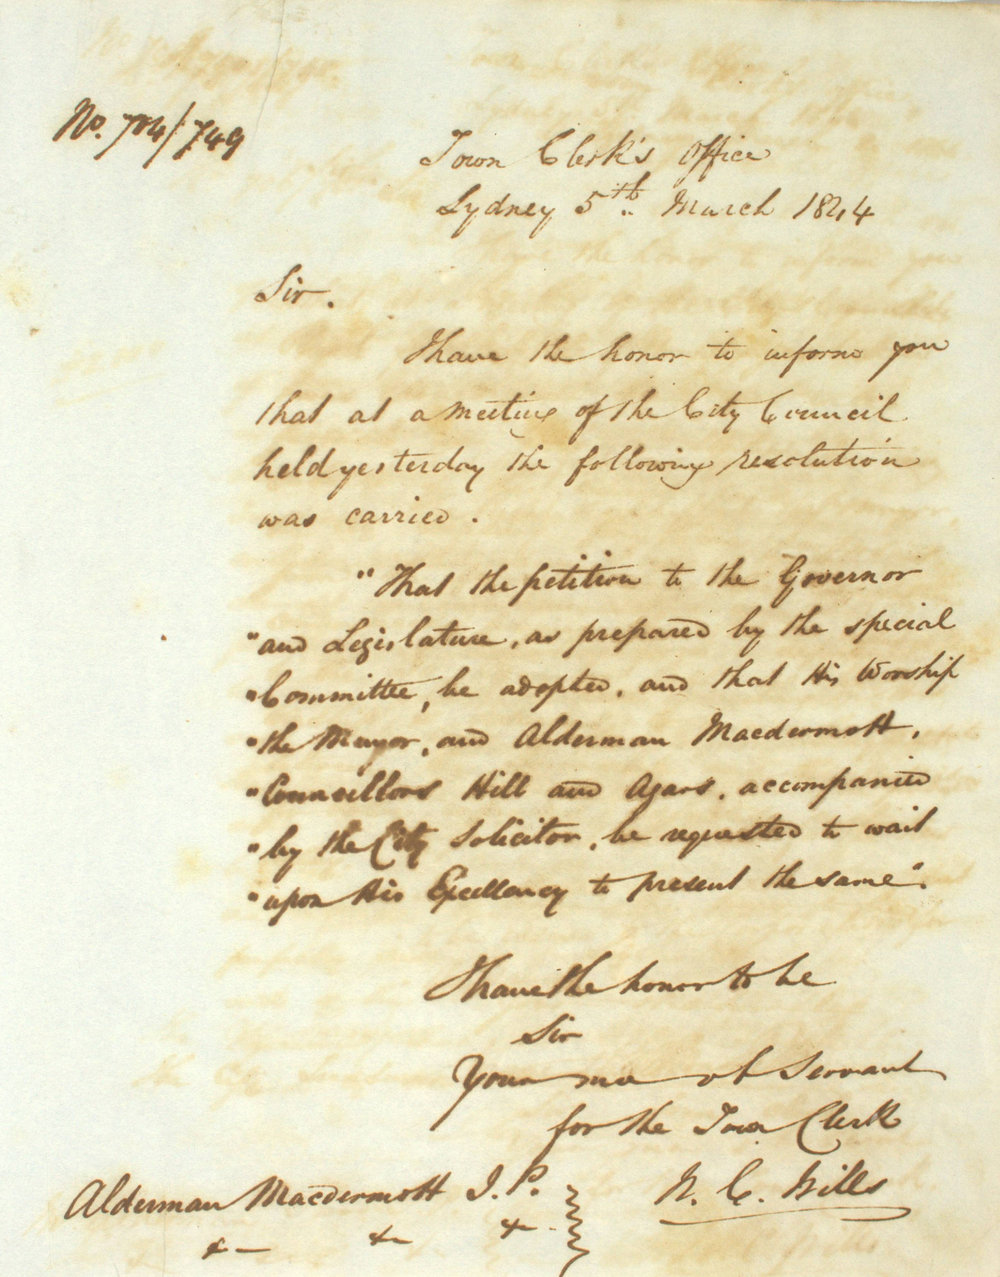 No. 704/749
Town Clerk's Office
Sydney 5th March 1844
Sir.
I have the honor to inform you
that at a meeting of the City Council
held yesterday the following resolution
was carried.
"That the petition to the Governor
"and Legislature, as prepared by the special
"Committee, be adopted, and that His Worship
"the Mayor, and Alderman Macdermott,
"Councillors Hill and Agars, accompanied
"by the City Solicitor, be requested to wait
"upon His Excellency to present the same".
I have the honor to be
Sir
Your mo ob Servant
for the Town Clerk
W. C. Wills
Alderman Macdermott J. P.
&c &c &c